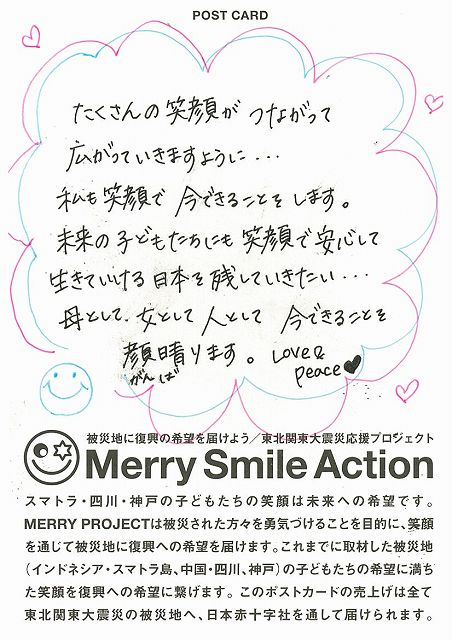 POST CARD
たくさんの笑顔が つながって
広がっていきますように・・・
私も笑顔で 今できることをします。
未来の子どもたちにも笑顔で安心して
生きていける日本を残していきたい・・・
母として、女として 人として 今できることを
顔晴ります。 Love&
がんば peace
被災地に復興の希望を届けよう／東北関東大震災応援プロジェクト
Merry Smile Action
スマトラ・四川・神戸の子どもたちの笑顔は未来への希望です。
MERRY PROJECTは被災された方々を勇気づけることを目的に、笑顔
を通じて被災地に復興への希望を届けます。これまでに取材した被災地
（インドネシア・スマトラ島、中国・四川、神戸）の子どもたちの希望に満ち
た笑顔を復興への希望に繋げます。このポストカードの売上げは全て
東北関東大震災の被災地へ、日本赤十字社を通して届けられます。